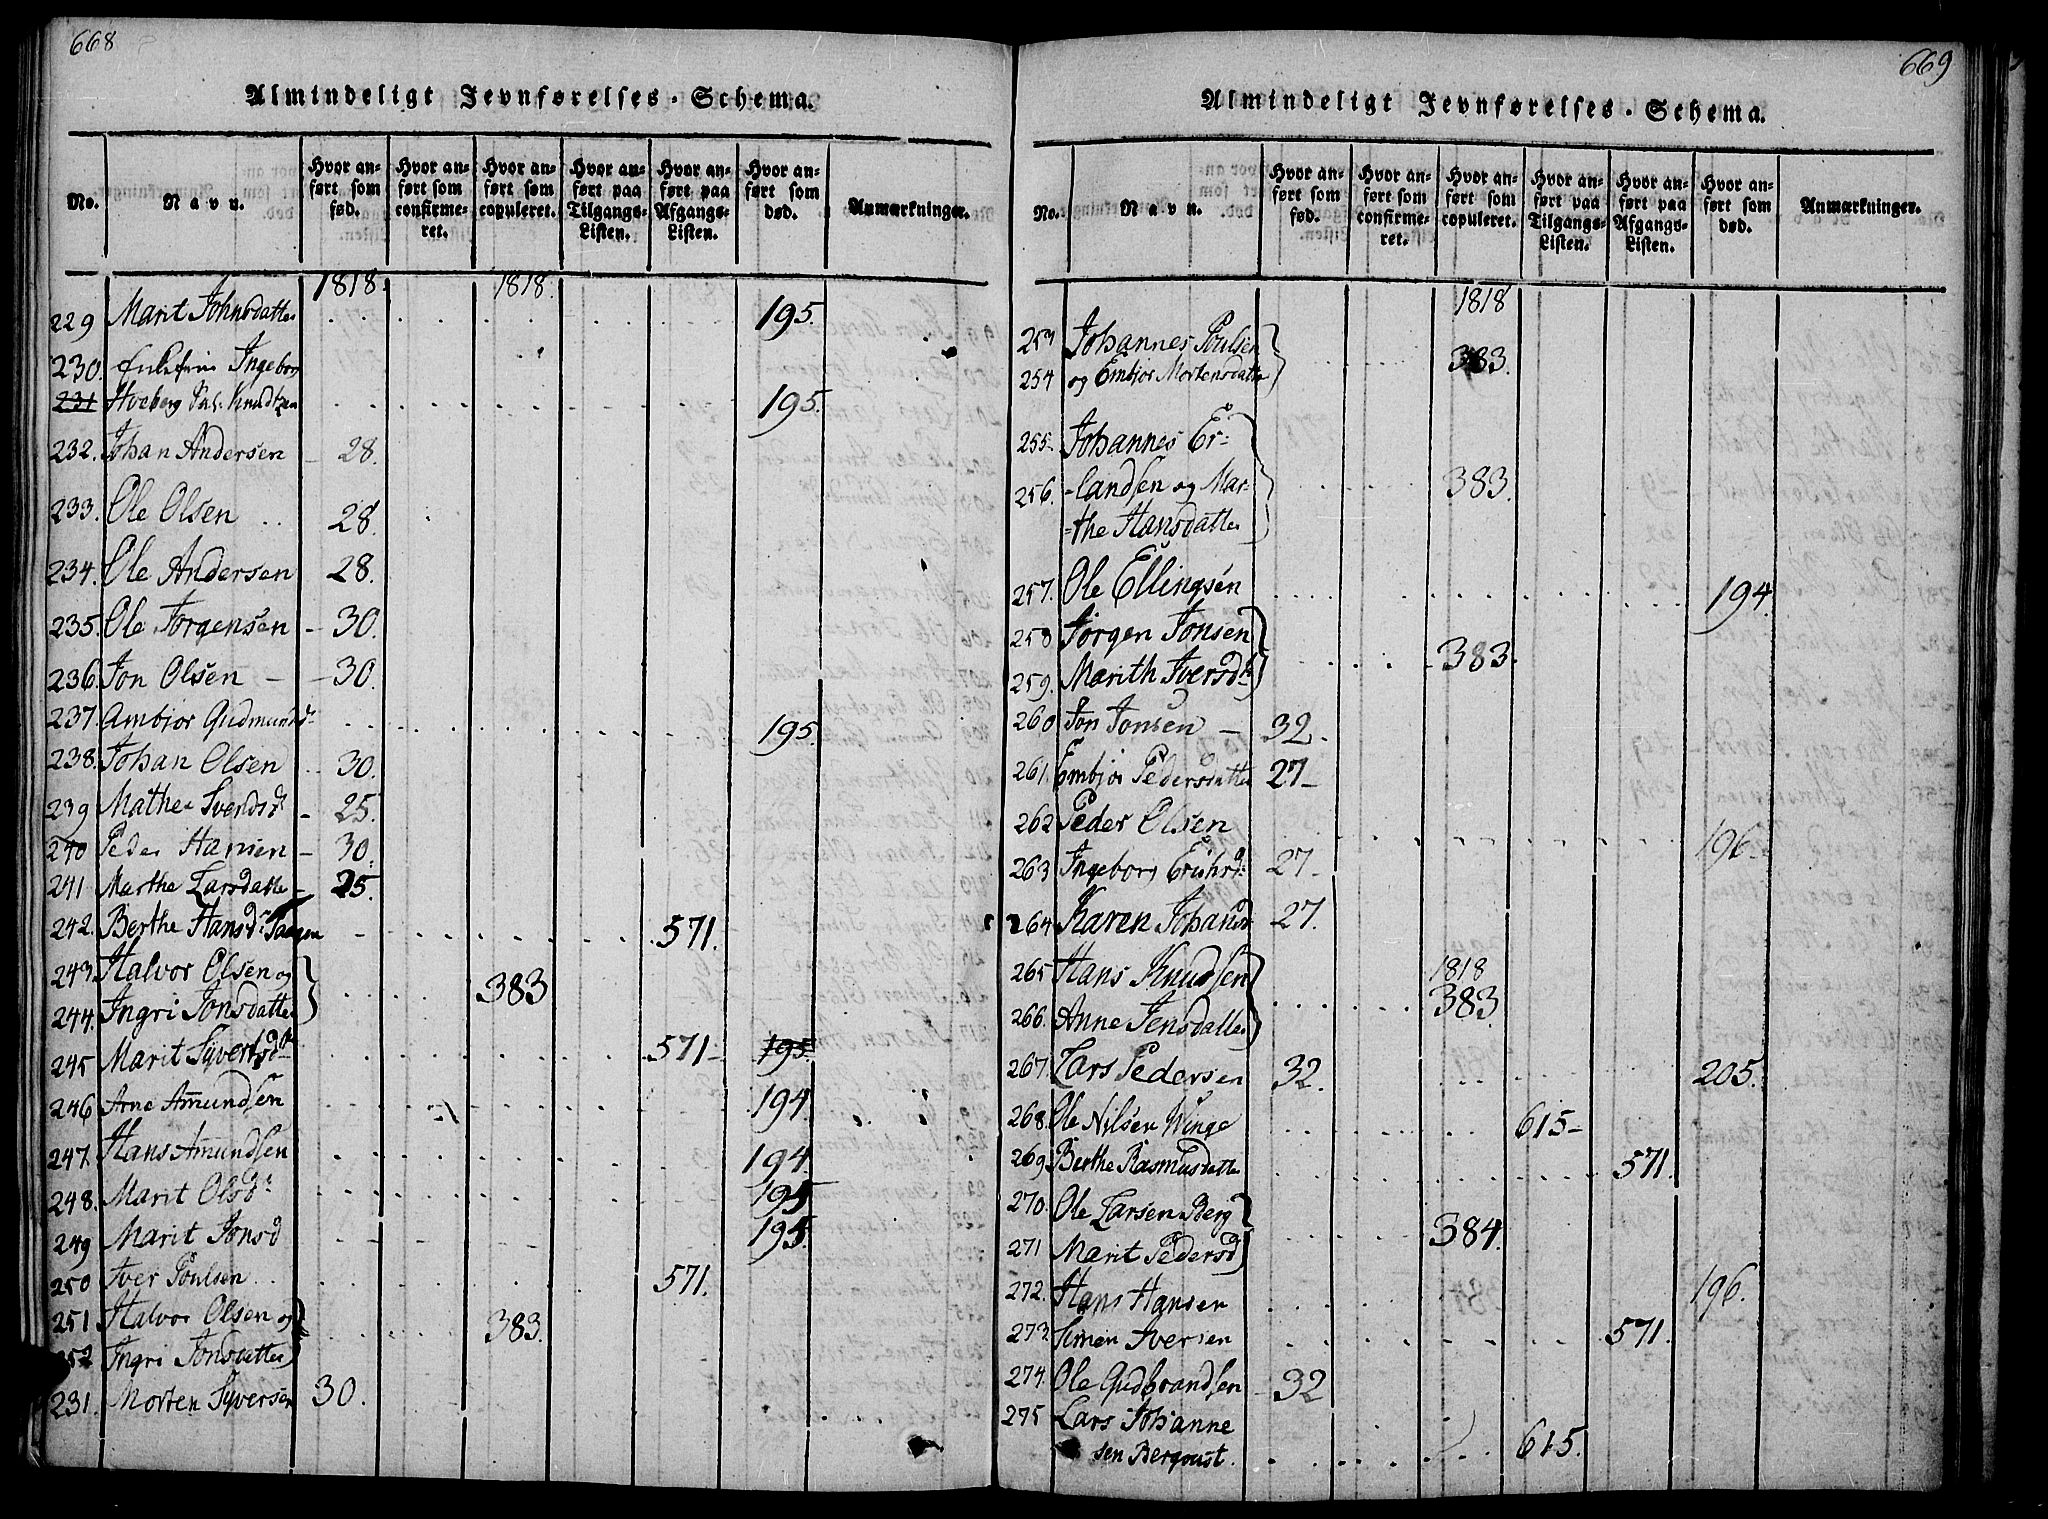 668
Almindeligt Jevnførelses-Schema.
No.
Navn.
Hvor an-
ført som
fød.
Hvor an-
ført som
confirme-
ret.
Hvor an-
ført som
copuleret.
Hvor an-
ført paa
Tilgangs-
Listen.
Hvor an-
ført paa
Afgangs-
Listen.
Hvor an-
ført som
død.
Anmærkninger.
1818. 1818.
229 Marit Johnsdatter 195.
230. Ingebor
231 Hveberg Knudtzen 195.
232. Johan Andersen 28.
233. Ole Olsen 28.
234. Ole Andersen 28.
235. Ole Jørgensen 30.
236. Jon Olsen 30.
237. Ambjør Gudmunds 195.
238. Johan Olsen 30.
239 Mathea Sverdsd 25.
240 Peder Hansen 30.
241 Marthe Larsdatter 25.
242. Berthe Hansd 571.
243. Halvor Olsen og
244. Ingri Jonsdatter 383
245 Marit Syvertsd 571 195.
246 Arne Amundsen 194.
247. Hans Amundsen 194
248. Marit Olsd 195
249 Marit Jonsd 195.
250 Iver Poulsen 571.
251 Halvor Olsen og
252 Ingri Jonsdatter 383.
231. Morten Syversen 30.
669
Almindeligt Jevnførelses-Schema.
No.
Navn.
Hvor an-
ført som
fød.
Hvor an-
ført som
confirme-
ret.
Hvor an-
ført som
copuleret.
Hvor an-
ført paa
Tilgangs-
Listen.
Hvor an-
ført paa
Afgangs-
Listen.
Hvor an-
ført som
død.
Anmærkninger.
1818
253 Johannes Poulsen
254 og Embjør Mortensdatter 383.
255. Johannes Er=
256. -landsen og Mar- 383.
=the Hansdatter
257. Ole Ellingsen 194.
258 Jørgen Jonsen
259. Marith Iversd 383.
260 Jon Jonsen 32.
261. Embjør Pedersdatter 27
262 Peder Olsen 196.
263 Ingeborg Erichsd 27
264 Karen Johansd 27.
265 Hans Knudsen 1818
266. Anne Jensdatter 383.
267. Lars Pedersen 32. 205.
268. Ole Nilsen Winge 615
269 Berthe Rasmusdatter 571.
270. Ole Larsen Berg
271 Marit Pedersd 384.
272. Hans Hansen 196.
273. Simen Iversen 571.
274. Ole Gudbrandsen 32
275 Lars Johanne
sen Berqvust. 615.